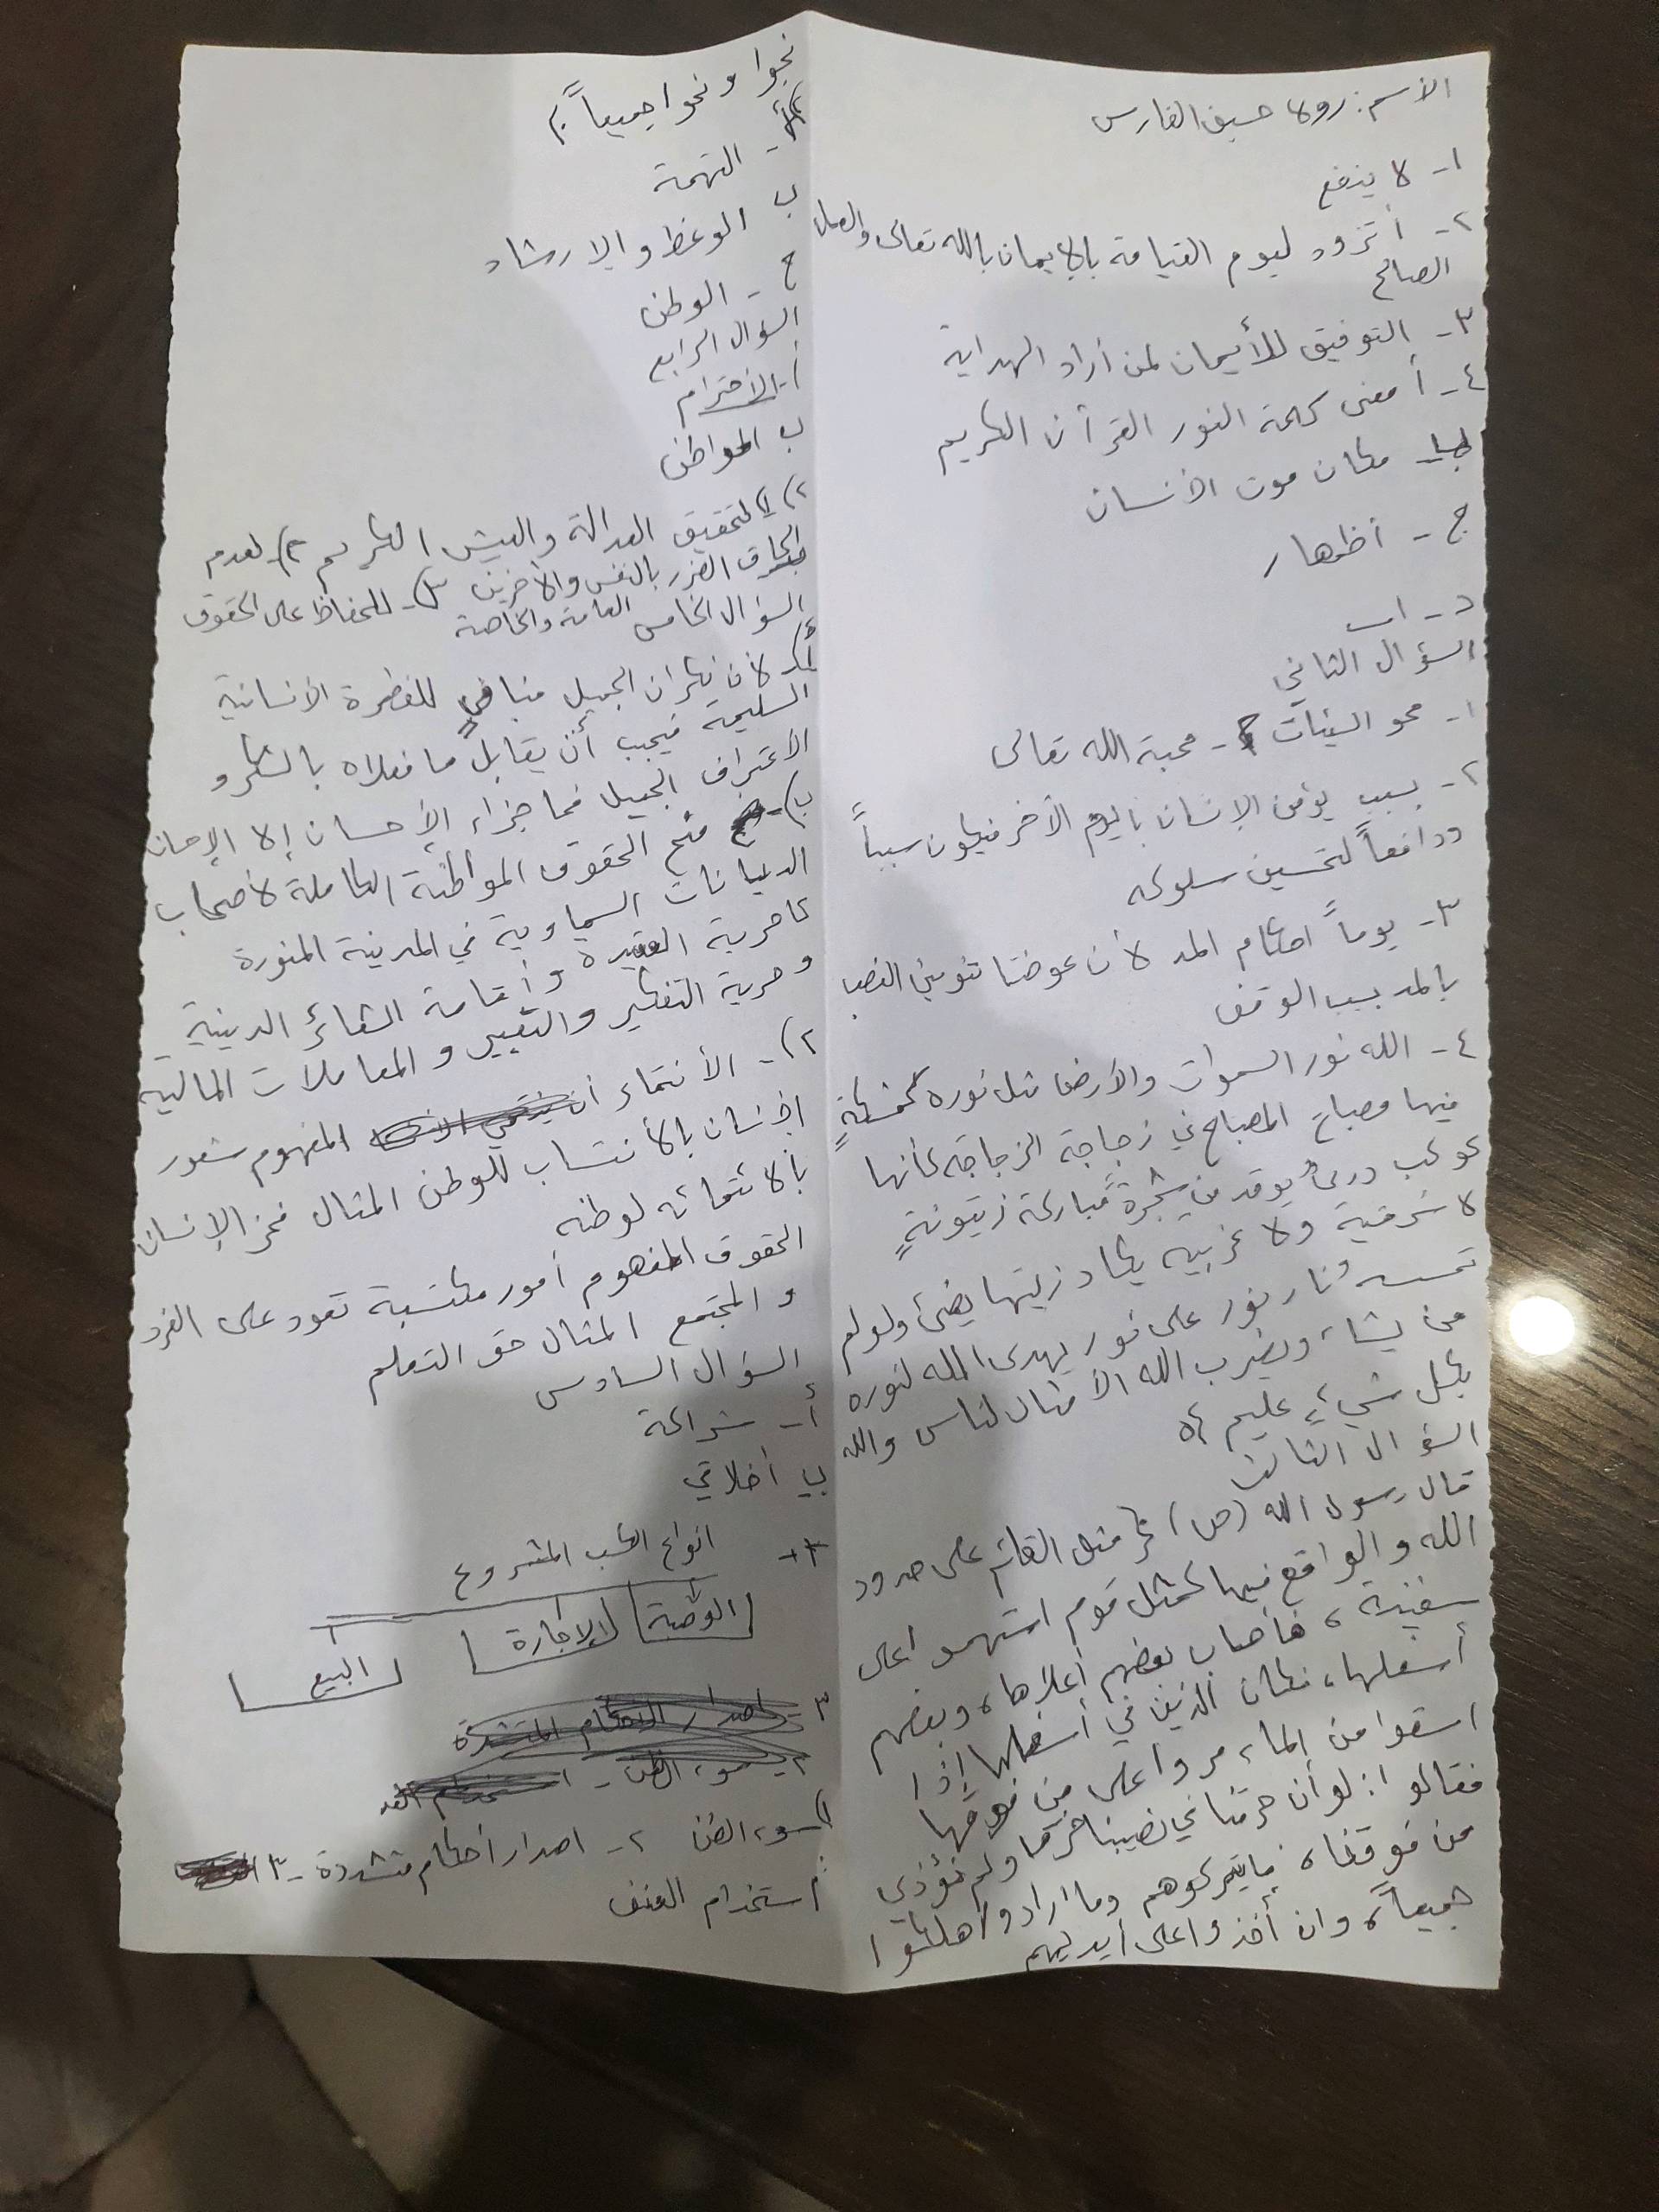 الأسم: رولا حسين الفارس
١- لا ينفع
٢- أتزود ليوم القيامة بالايمان بالله تعالى والعمل
الصالح
٣- التوفيق للأيمان لمن أراد الهداية
٤- أ معنى كلمة النور القرآن الكريم
ب- مكان موت الأنسان
ج - أظهار
د - ا
السؤال الثاني
١- محو السيئات ٢- محبة الله تعالى
٢- بسبب يؤمن الإنسان باليوم الأخر فيكون سبباً
ودافعاً لتحسين سلوكه
٣- يوماً احكام المد لأن عوضنا تنوين النصب
بالمد بسبب الوقف
٤- الله نور السموات والأرض مثل نوره كمشكاةٍ
فيها مصباح المصباح في زجاجة الزجاجة كأنها
كوكب دري يوقد من شجرة مباركة زيتونةٍ
لا شرقية ولا غربية يكاد زيتها يضئ ولو لم
تمسسه نار نور على نور يهدى الله لنوره
من يشاء ويضرب الله الأمثال لناس والله
بكل شيءٍ عليم ٣٥
السؤال الثالث
قال رسول الله (ص) مثل القائم على حدود
الله والواقع فيها كمثل قوم استهموا على
سفينة، فأصاب بعضهم أعلاها، وبعضهم
أسفلها، فكان الذين في أسفلها إذا
استقوا من الماء مروا على من فوقها
فقالوا: لو أن خرقنا في نصيبنا خرقا ولم نؤذي
من فوقنا، فإن يتركوهم وما ارادوا هلكوا
جميعاً، وان أخذوا على أيديهم
نجوا ونجوا جميعاً)
- التهمة
ب الوعظ والارشاد
ج - الوطن
السؤال الرابع
أ- الأحترام
ب المواطن
٢) ١) لتحقيق العدالة والعيش الكريم ٢)- لعدم
الحاق الضرر بالنفس والأخرين ٣)- للحفاظ على الحقوق
العامة والخاصة
السؤال الخامس
أ) لأن نكران الجميل منافي للفطرة الأنسانية
السليمة فيجب أن يقابل ما فعلاه بالشكر و
الأعتراف الجميل فما جزاء الإحسان إلا الإحسان
ب)- منح الحقوق المواطنة الكاملة لأصحاب
الديانات السماوية في المدينة المنورة
كا حرية العقيدة وأقامة الشعائر الدينية
وحرية التفكير والتعبير والمعاملات المالية
٢)- الأنتماء المفهوم شعور
الإنسان بالأنتساب للوطن المثال فخر الإنسان
بالانتمائه لوطنه
الحقوق المفهوم أمور مكتسبة تعود على الفرد
و المجتمع المثال حق التعلم
السؤال السادس
أ- شراكة
ب أخلاقي
٢- انواع الكسب المشروع
الوصية
الإجارة
البيع
٣- اصدار الاحكام المتشددة
٢- سوء الظن -
١) سوء الظن ٢- اصدار أحكام متشددة ٣-
أستخدام العنف